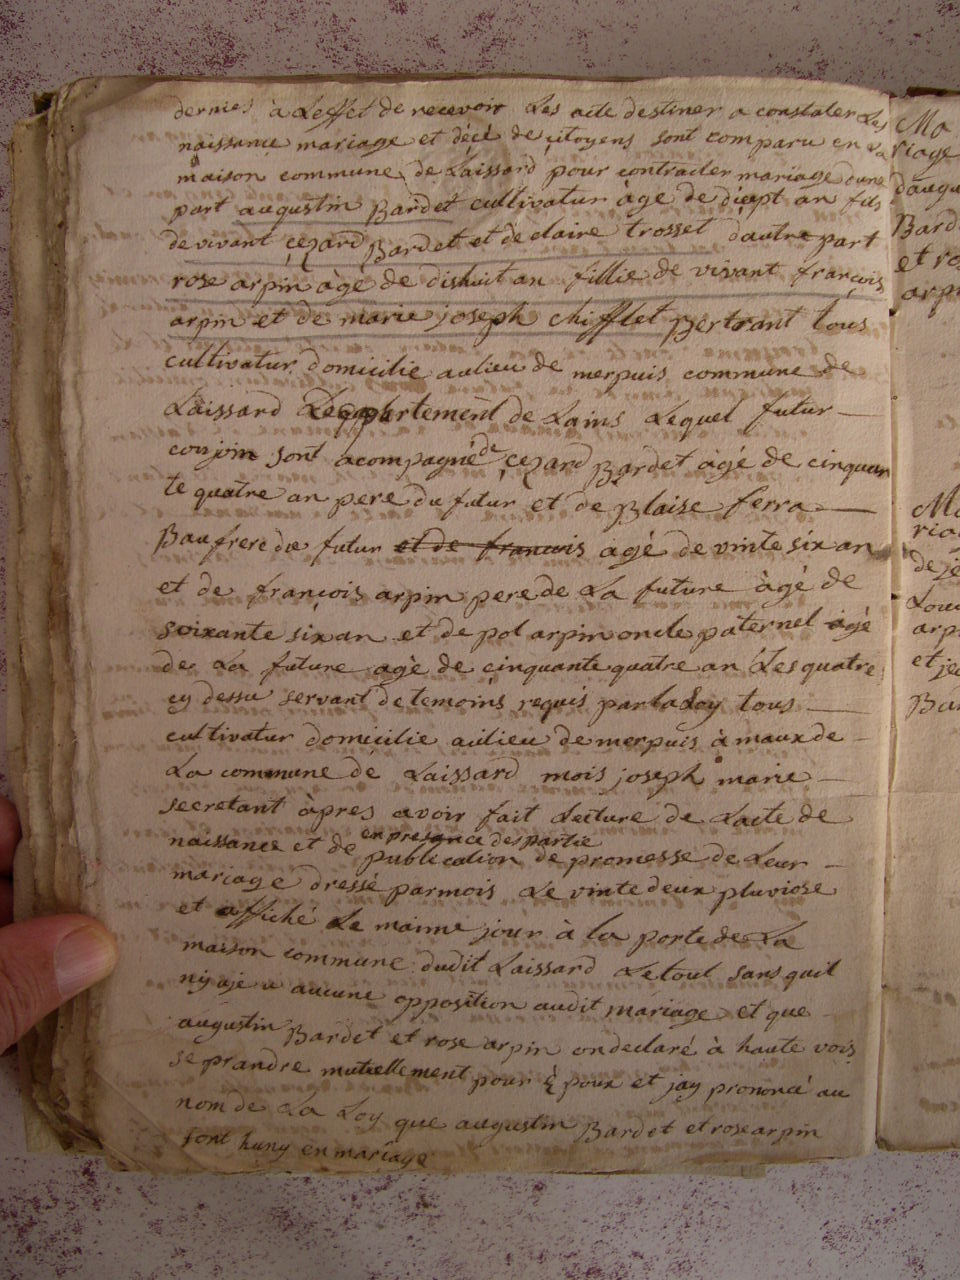 dernies à Leffet de recevoir Les acte destiner a constater Les
naissance mariage et décé de çitoyens sont comparu en La
maison commune de Laissard pour contracter mariage dune
part augustin Bardet cultivatur âge de diсept an fils
de vivant çezard Bardet et de claire trosset dautre part
rose arpin àgé de dishuit an fillie de vivant françois
arpin et de marie joseph chifflet Bertrant tous
cultivatur domicilie aulieu de merpuis commune de
Laissard Departement de Lains Lequel futur
conjoin sont acompagné de çezard Bardet agé de cinquan
te quatre an pere du futur et de Blaise ferra
Baufrere du futur et de francois agé de vinte six an
et de françois arpin pere de La future àgé de
soixante six an et de pol arpin oncle paternel agé
de La future agé de cinquante quatre an Les quatre
cy dessu servant de temoins requis par la Loy tous
cultivatur domicilie aulieu de merpuis à maux de
La commune de Laissard mois joseph marie
secretant àpres avoir fait Lecture de Lacte de
naissance et de en presance des partie publication de promesse de Leur
mariage dressé par mois Le vinte deux pluviose
et affiché Le maime jour à la porte de La
maison commune dudit Laissard Le tout sans quil
ny aje u aucune opposition audit mariage et que
augustin Bardet et rose arpin on declaré à haute vois
se prandre mutuellement pour époux et jay prononcé au
nom de La Loy que augustin Bardet et rose arpin
sont huny en mariage
Ma
riage
daugu
Bard
et ro
arpi
Ma
riag
de je
Loui
arp
et je
Ba